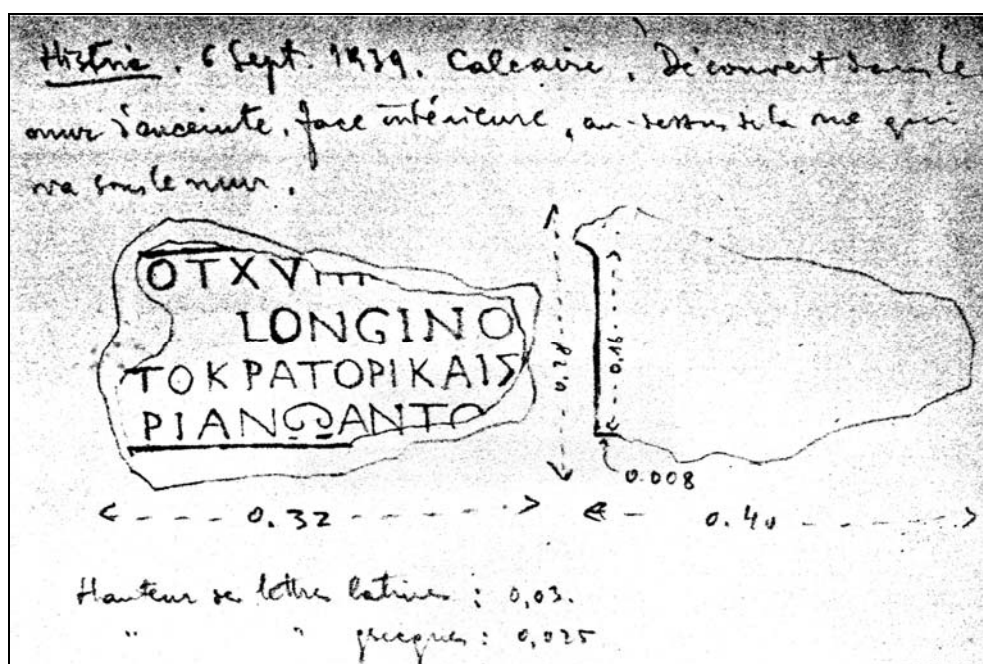 Histria. 6 Sept. 1939. Calcaire. Découvert dans le
mur d'enceinte, face intérieure, au-dessus de la rue qui
va sous le mur.
OTXVIII
LONGINO
ΤΟΚΡΑΤΟΡΙΚΑΙΣ
ΡΙΑΝΩΑΝΤΟ
0.28
0.16
0.008
0.32
0.40
Hauteur des lettres latines : 0,03.
" " grecques : 0,025